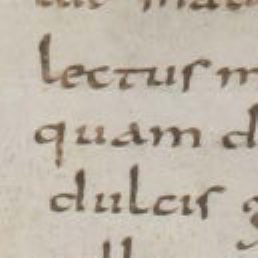 lectus m
quam d
dulcis